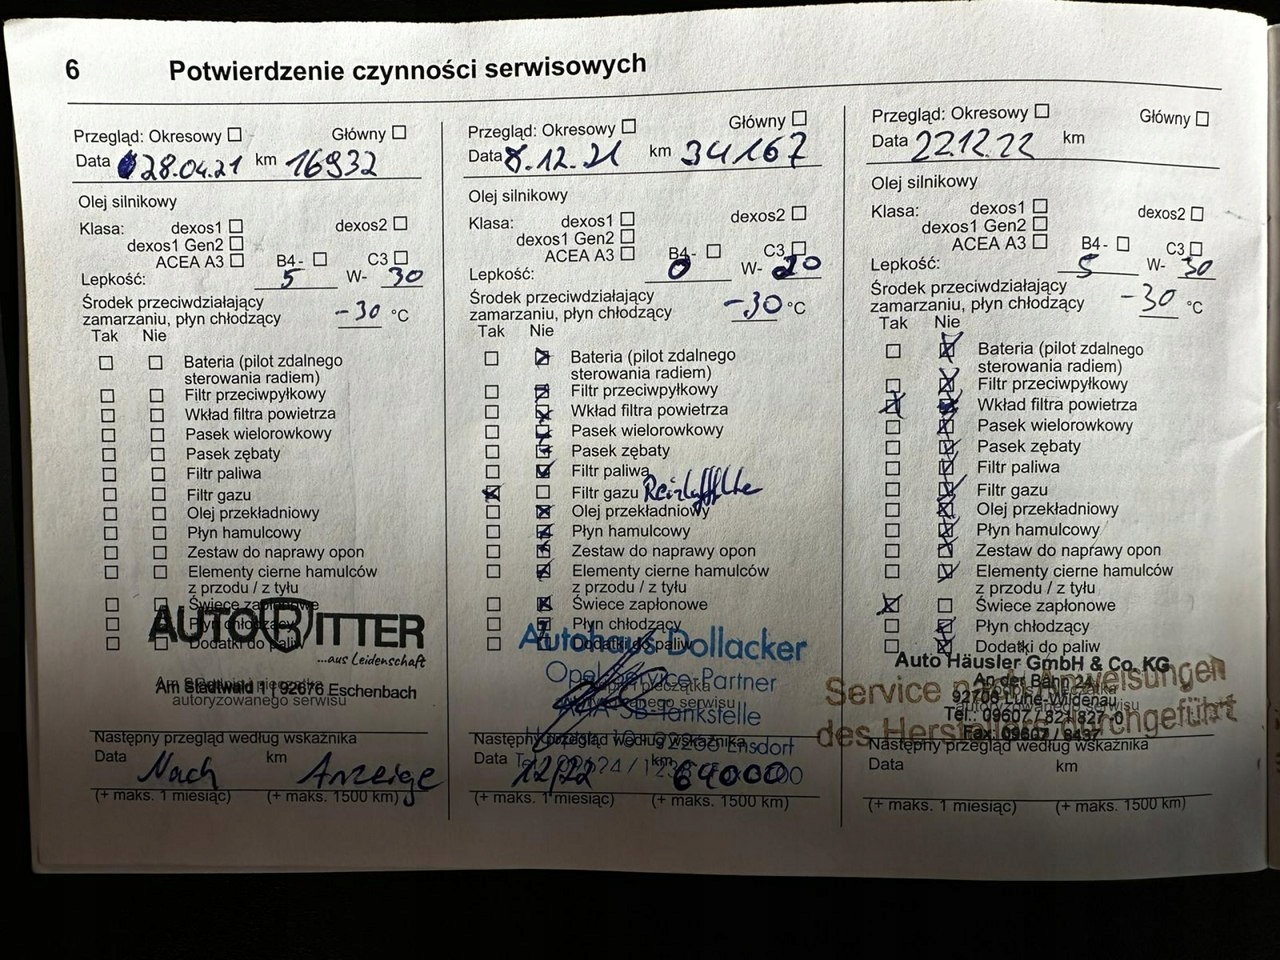 6 Potwierdzenie czynności serwisowych
Przegląd: Okresowy ☐ Główny ☐
Data 28.04.21 km 16932
Olej silnikowy
Klasa: dexos1 ☐ dexos2 ☐
dexos1 Gen2 ☐
ACEA A3 ☐ B4- ☐ C3 ☐
Lepkość: 5 W- 30
Środek przeciwdziałający
zamarzaniu, płyn chłodzący -30 °C
Tak Nie
☐ ☐ Bateria (pilot zdalnego
sterowania radiem)
☐ ☐ Filtr przeciwpyłkowy
☐ ☐ Wkład filtra powietrza
☐ ☐ Pasek wielorowkowy
☐ ☐ Pasek zębaty
☐ ☐ Filtr paliwa
☐ ☐ Filtr gazu
☐ ☐ Olej przekładniowy
☐ ☐ Płyn hamulcowy
☐ ☐ Zestaw do naprawy opon
☐ ☐ Elementy cierne hamulców
z przodu / z tyłu
☐ ☐ Świece zapłonowe
☐ ☐ Płyn chłodzący
☐ ☐ Dodatki do paliw
AUTO RITTER
...aus Leidenschaft
Am Stadtwald 1 | 92676 Eschenbach
autoryzowanego serwisu
Następny przegląd według wskaźnika
Data Nach km Anzeige
(+ maks. 1 miesiąc) (+ maks. 1500 km)
Przegląd: Okresowy ☐ Główny ☐
Data 8.12.21 km 34167
Olej silnikowy
Klasa: dexos1 ☐ dexos2 ☐
dexos1 Gen2 ☐
ACEA A3 ☐ B4- ☐ C3 ☐
Lepkość: 0 W- 20
Środek przeciwdziałający
zamarzaniu, płyn chłodzący -30 °C
Tak Nie
☐ ☒ Bateria (pilot zdalnego
sterowania radiem)
☐ ☒ Filtr przeciwpyłkowy
☐ ☒ Wkład filtra powietrza
☐ ☒ Pasek wielorowkowy
☐ ☒ Pasek zębaty
☐ ☒ Filtr paliwa
☒ ☐ Filtr gazu
☐ ☒ Olej przekładniowy
☐ ☒ Płyn hamulcowy
☐ ☒ Zestaw do naprawy opon
☐ ☒ Elementy cierne hamulców
z przodu / z tyłu
☐ ☒ Świece zapłonowe
☐ ☒ Płyn chłodzący
☐ ☒ Dodatki do paliw
Autohaus Dollacker
Opel Service Partner
SB-Tankstelle
Ensdorf
Następny przegląd według wskaźnika
Data 12/22 km 64000
(+ maks. 1 miesiąc) (+ maks. 1500 km)
Przegląd: Okresowy ☐ Główny ☐
Data 22.12.22 km
Olej silnikowy
Klasa: dexos1 ☐ dexos2 ☐
dexos1 Gen2 ☐
ACEA A3 ☐ B4- ☐ C3 ☐
Lepkość: 5 W- 30
Środek przeciwdziałający
zamarzaniu, płyn chłodzący -30 °C
Tak Nie
☐ ☒ Bateria (pilot zdalnego
sterowania radiem)
☐ ☒ Filtr przeciwpyłkowy
☒ ☒ Wkład filtra powietrza
☐ ☒ Pasek wielorowkowy
☐ ☒ Pasek zębaty
☐ ☒ Filtr paliwa
☐ ☒ Filtr gazu
☐ ☒ Olej przekładniowy
☐ ☒ Płyn hamulcowy
☐ ☒ Zestaw do naprawy opon
☐ ☒ Elementy cierne hamulców
z przodu / z tyłu
☒ ☐ Świece zapłonowe
☐ ☒ Płyn chłodzący
☐ ☒ Dodatki do paliw
Auto Häusler GmbH & Co. KG
An der Bahn 24
92706 Luhe-Wildenau
Tel.: 09607 / 821 827-0
Fax: 09607 / 8437
Service
des durchgeführt
Następny przegląd według wskaźnika
Data km
(+ maks. 1 miesiąc) (+ maks. 1500 km)